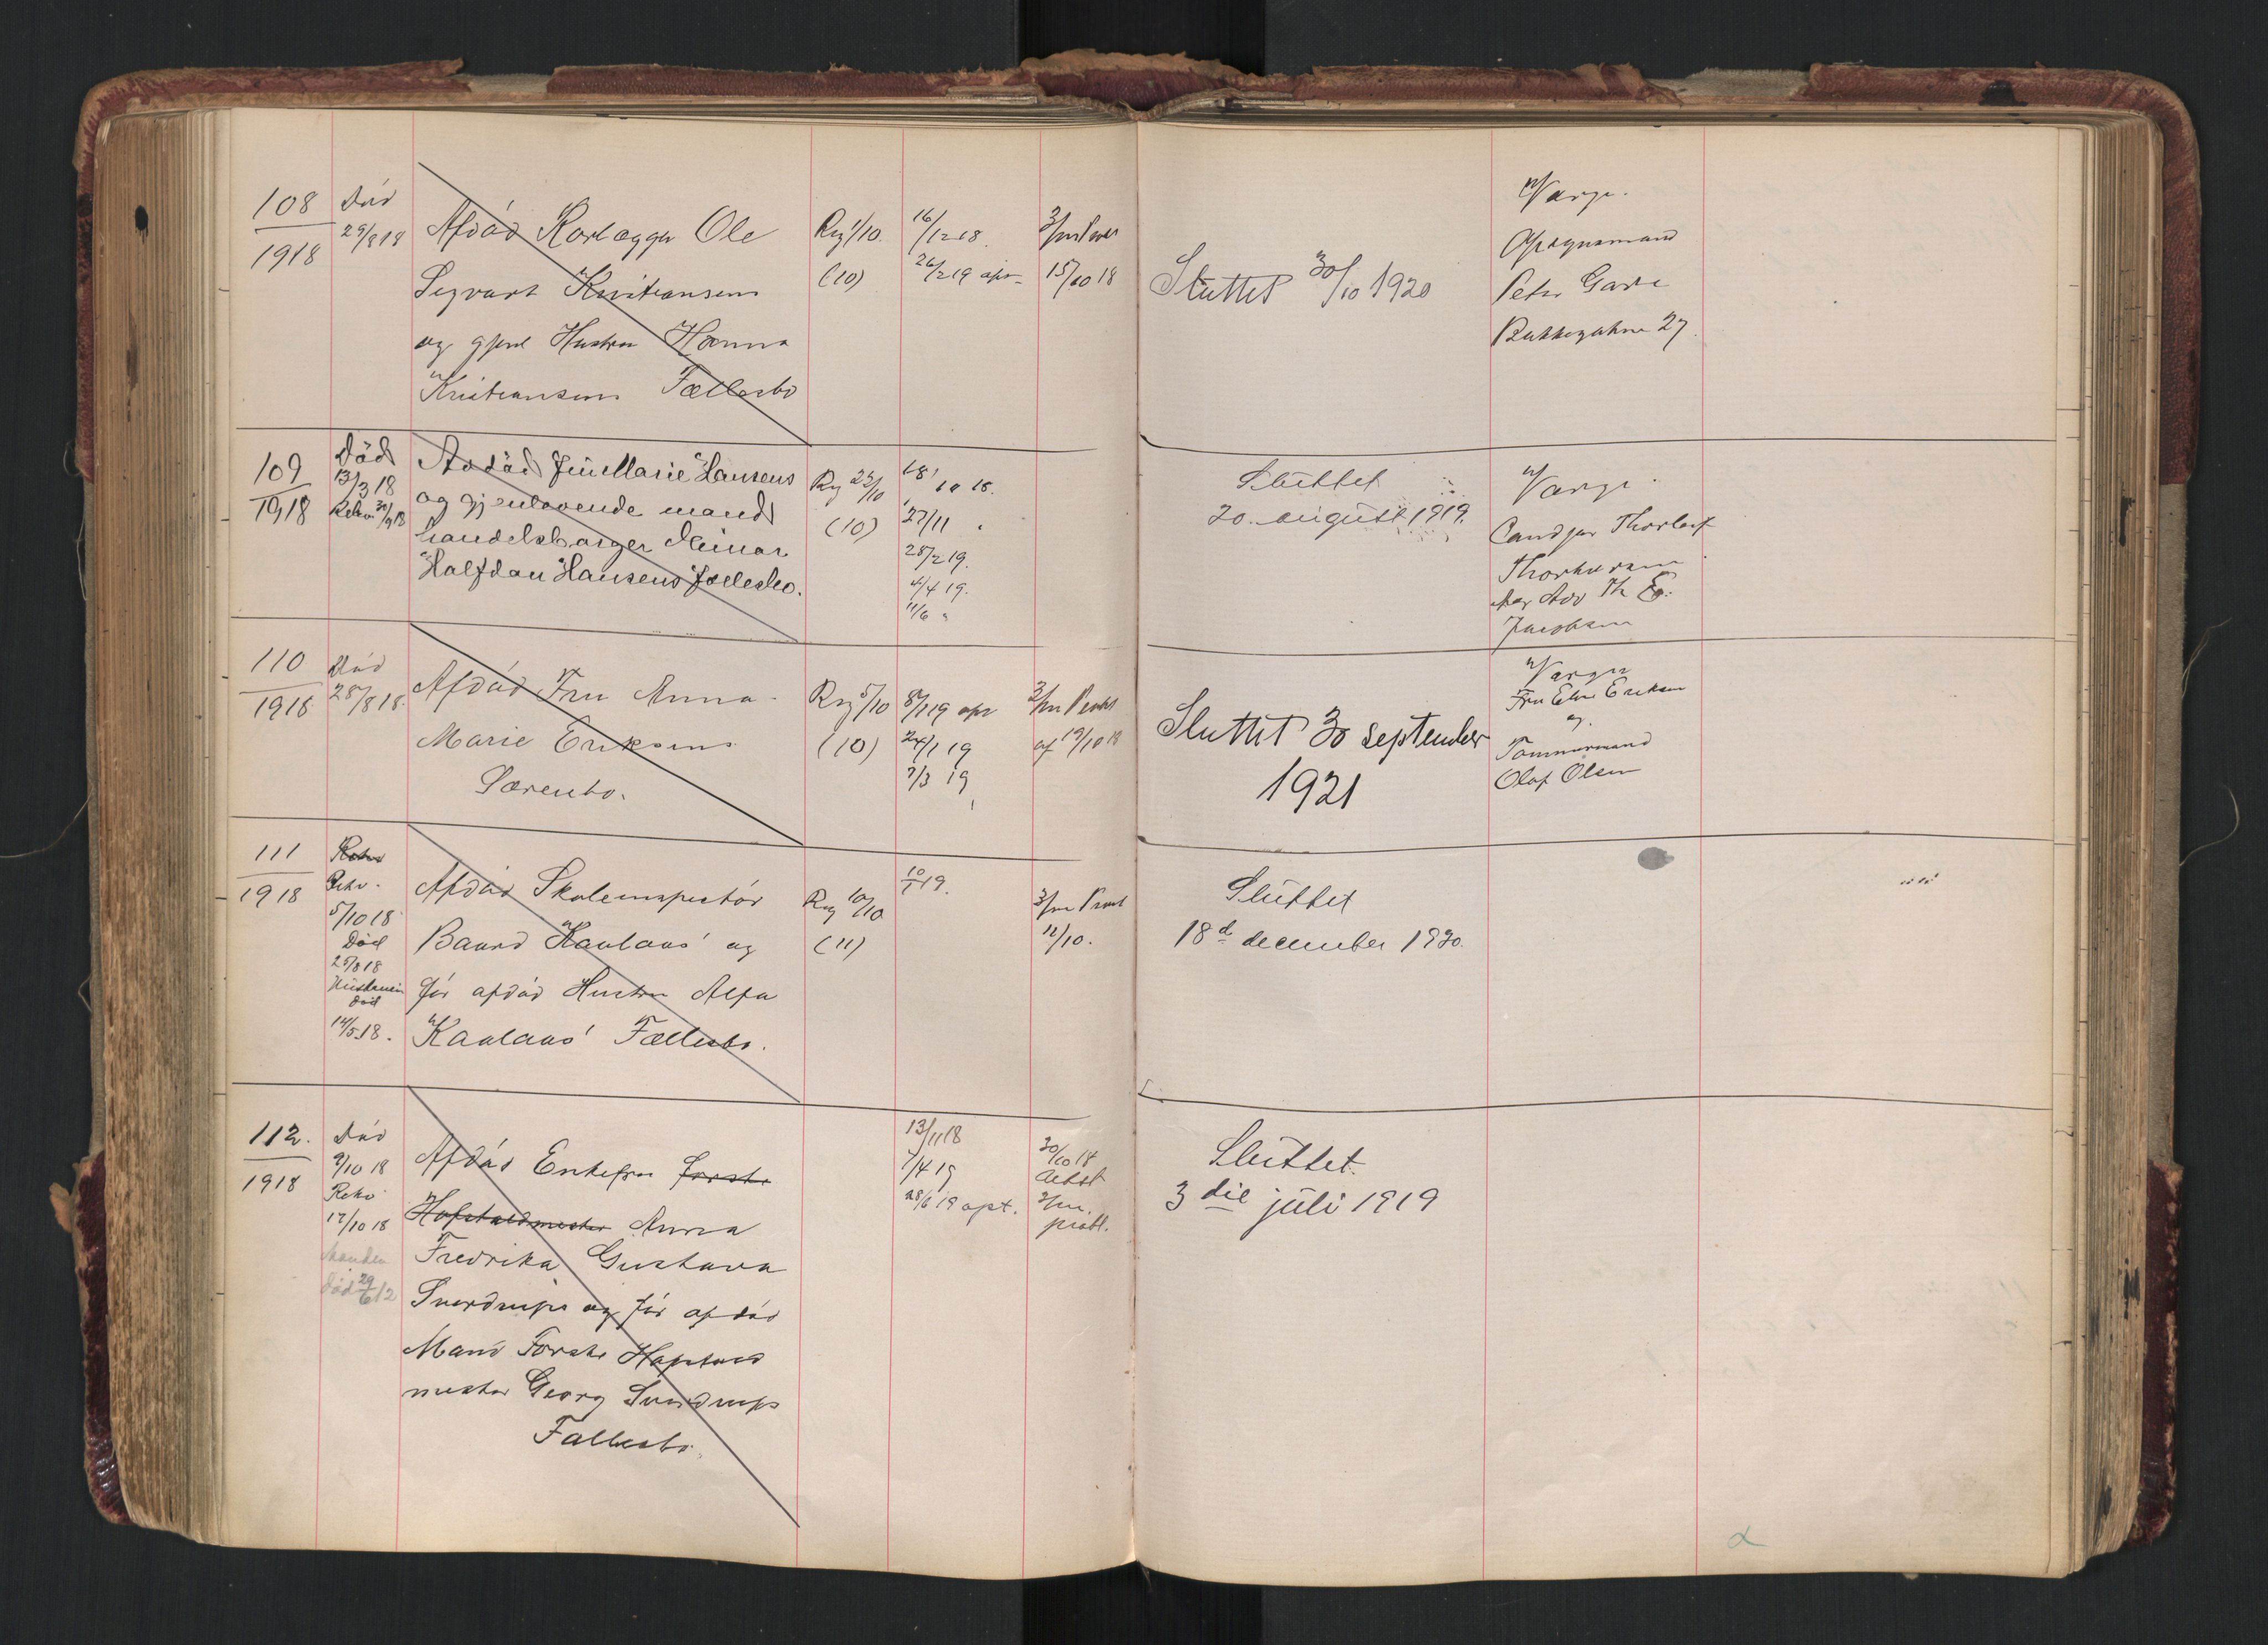 108
1918
Død
29/8 18
Afdød Rørlægger Ole
Sigvart Kristiansens
og gjenl Hustru Hanna
Kristiansens Fællesbo
Reg 1/10
(10)
16/12 18.
26/2 19 apr
3/m Procl
15/10 18
Sluttet 30/10 1920
Værge.
Opsynsmand
Peter Garde
Bakkegaten 27.
109
1918
Död
13/3 18
Rekv. 30/9 18
Avdöd Jine Marie Hansens
og gjenlevende mand
handelsborger Einar
Halfdan Hansens Fællesbo.
Reg 22/10
(10)
18/10 18.
27/11 "
28/2 19.
4/4 19.
11/6 "
Sluttet
20. august 1919.
Værge.
Cand jur Thorleif
Jacobsen
110
1918
Død
28/8 18.
Afdød Fru Anna
Marie Eriksens
Særenbo.
Reg 5/10
(10)
8/1 19 apr
24/1 19
7/3 19
3/m Procl
af 19/10 18
Sluttet 30 september
1921
Værger
Fru Elise Eriksen
og
Tømmermand
Olaf Olsen
111
1918
Rekv
Rekv.
5/10 18
Död
25/8 18
Hustruen
död
14/5 18.
Afdød Skoleinspektør
Baard Kaalaas' og
før afdød Hustru Alfa
Kaalaas' Fællesbo.
Reg 10/10
(11)
10/1 19.
3/m Procl
12/10.
Sluttet
18d december 1920.
112.
1918
Død
9/10 18
Rekv
17/10 18
Manden
död 29/6 12
Afdød Enkefru første
Hofstaldmester Anna
Fredrika Gustava
Sverdrups og før afdød
Mand Første Hofstald
mester Georg Sverdrups
Fællesbo.
13/11 18
1/4 19
28/6 19 apt.
30/10 18
Utst
3/m.
prokl.
Sluttet.
3die juli 1919